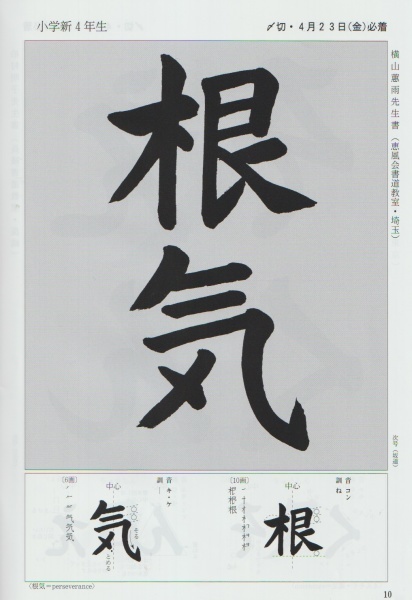 小学新4年生
〆切・4月23日(金)必着
横山蕙雨先生書(恵風会書道教室・埼玉)
根気
次号(坂道)
音 コン
訓 ね
中心
根
(10画)
音 キ・ケ
訓 ―
中心
気
とめる
(6画)
(根気=perseverance)
10